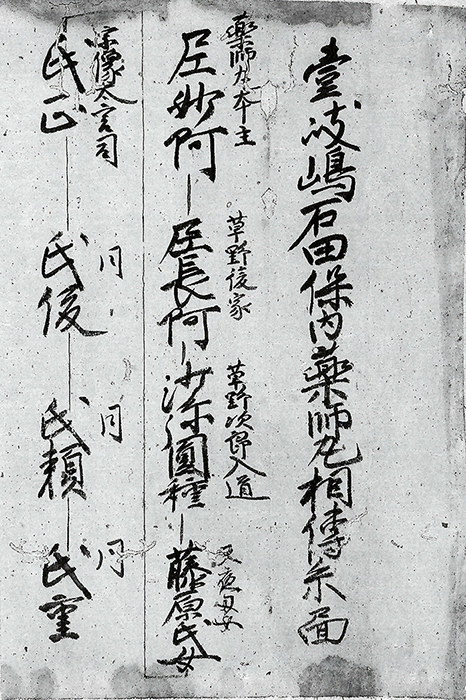 壹岐嶋石田保内薬師丸相傳系圖
薬師丸本主 草野後家 草野次郎入道
尼妙阿―尼長阿―沙弥圓種―藤原氏女
宗像大宮司 同 同 同
氏正―氏俊―氏頼―氏重